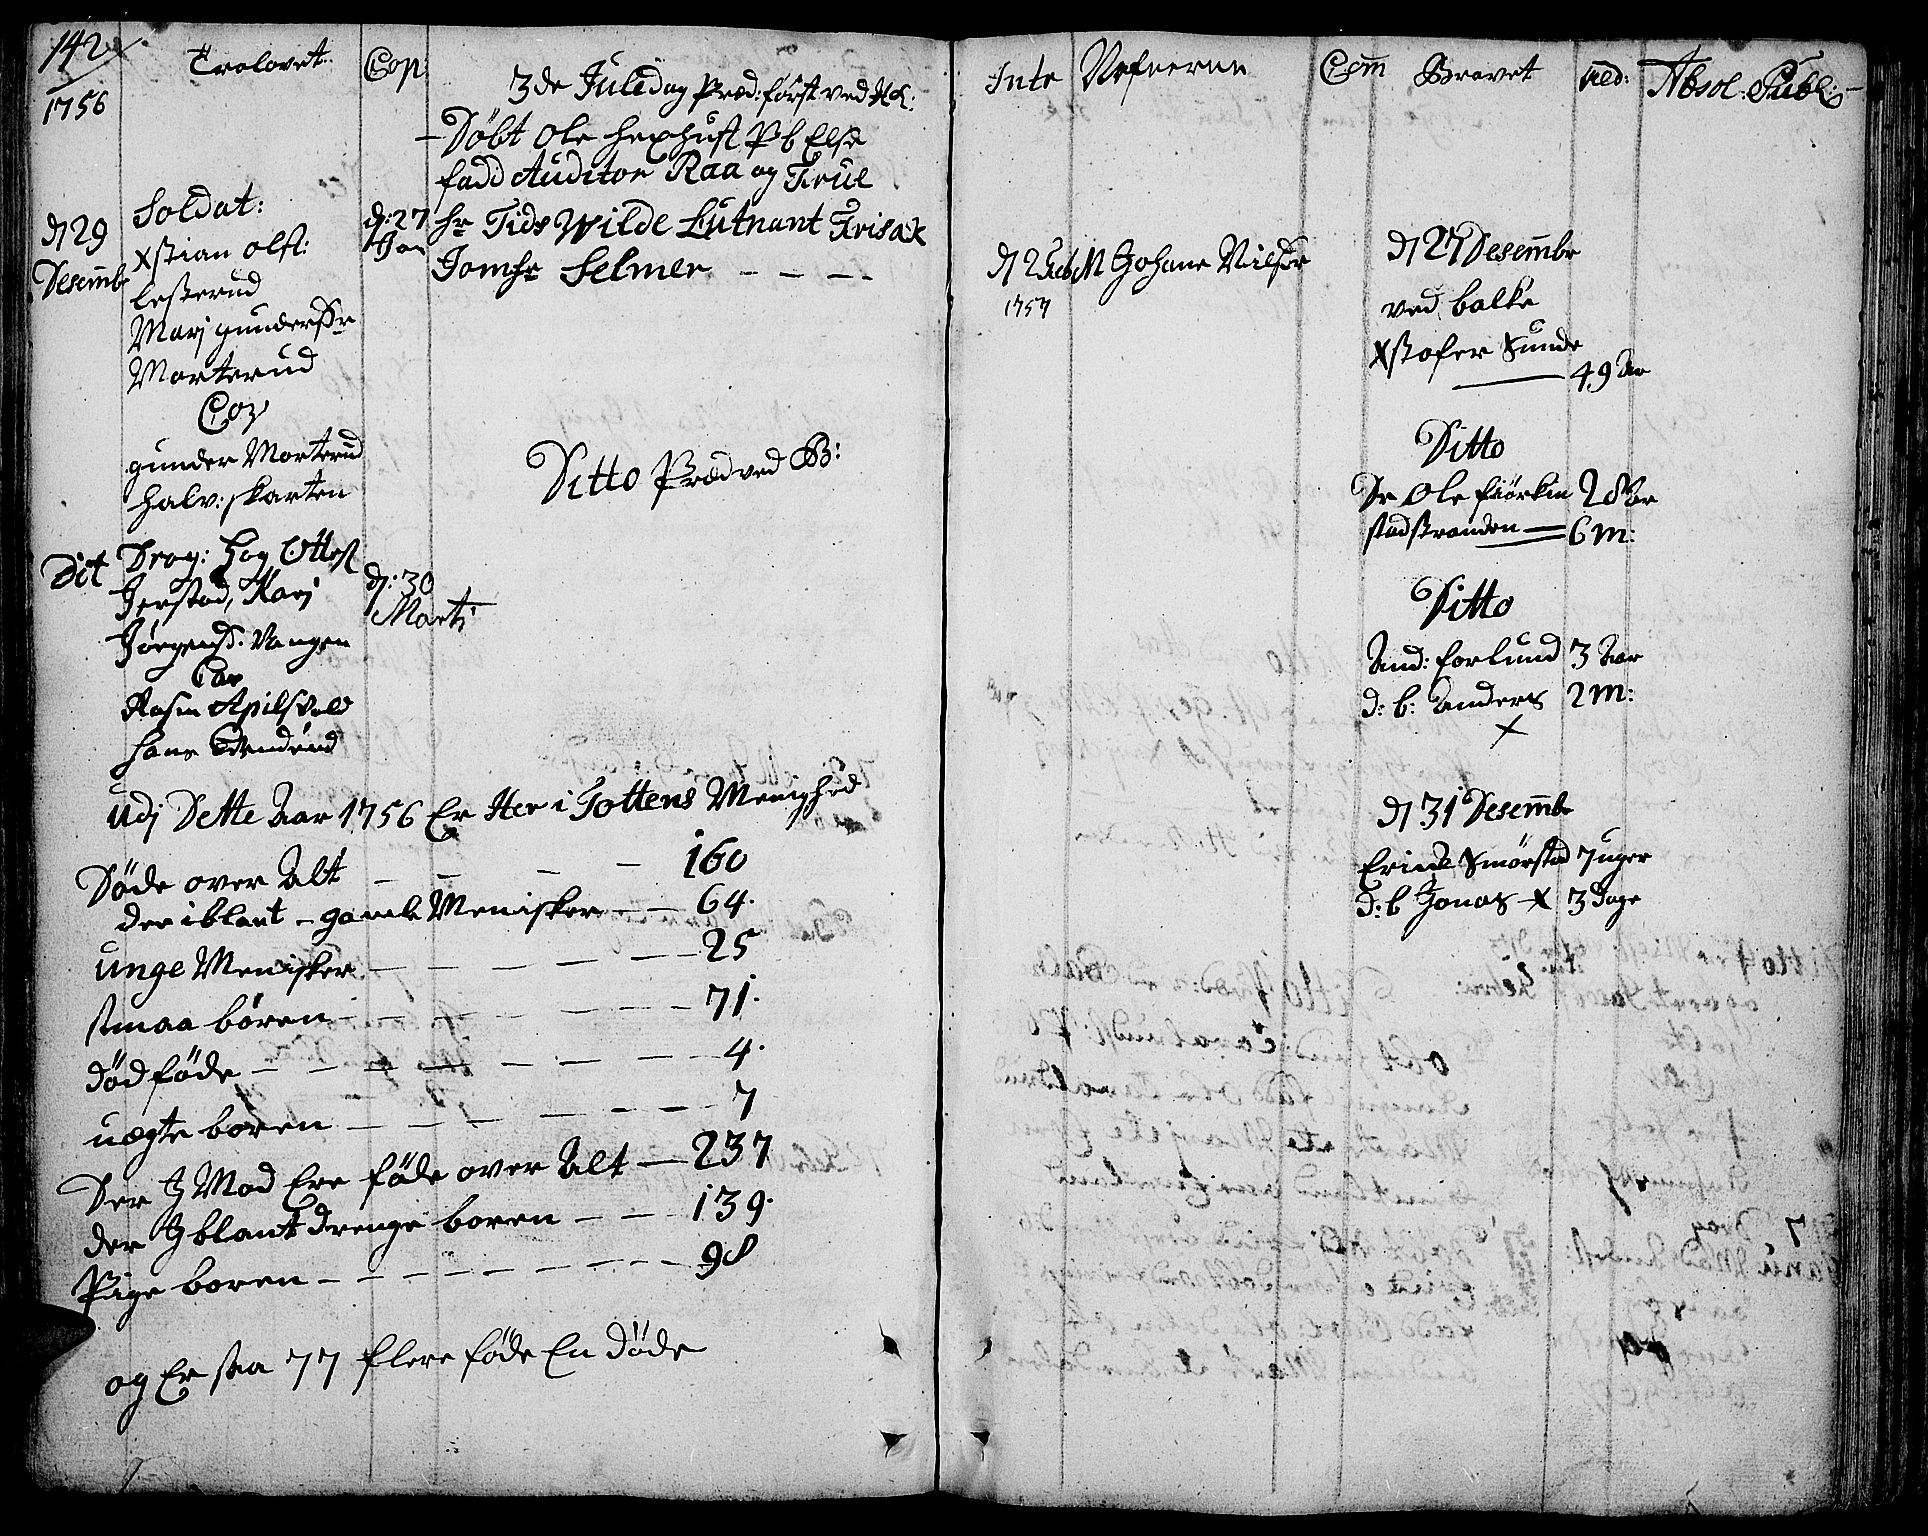 142
1756
Trolovet
Cop:
3de Juledag Præd: først ved HK:
Døbt Ole hexhust Pb Else
fadd Auditor Raa og Frue
hr Tids Wilde Lutnant Frisak
Jomfr Selmer
d 29
Desembr
Soldat:
Xstian olß:
leßerud
Marj gunderßr
Morterud
Cog
gunder Morterud
halv: skarten
d: 27
Jan
Ditto Præd ved B:
Dit
Drag: Hog Otteß
Jerstad, Karj
Jørgensd. Vangen
Cav
Rasm Apilsvold
hans
d: 30
Marti
Udj Dette Aar 1756 Er Her i Tottens Menighed
Døde over Alt 160
der iblant gamle Menisker 64.
unge Menisker 25
smaa børen 71.
død føde 4.
uægte boren 7
Der J Mod Ere føde over Alt 237
der Jblant drenge boren 139.
Pige boren 98
og Er saa 77 flere føde En døde
Inte Nefnerne
Com
Gravet
Æld:
Absol: Publ:
d 2 Feb M Johane Nilsdr
1757
d 27 Desembr
ved balke
Xstofer Sunde
49 Aar
Ditto
Dr Ole fiörken 28 Aar
stadstranden 6 m:
Ditto
And: forlund 3 Aar
d: b: Anders 2 m:
X
d 31 Desembr
Erich Smørstad 7 uger
d: b Jonas X 3 Dage